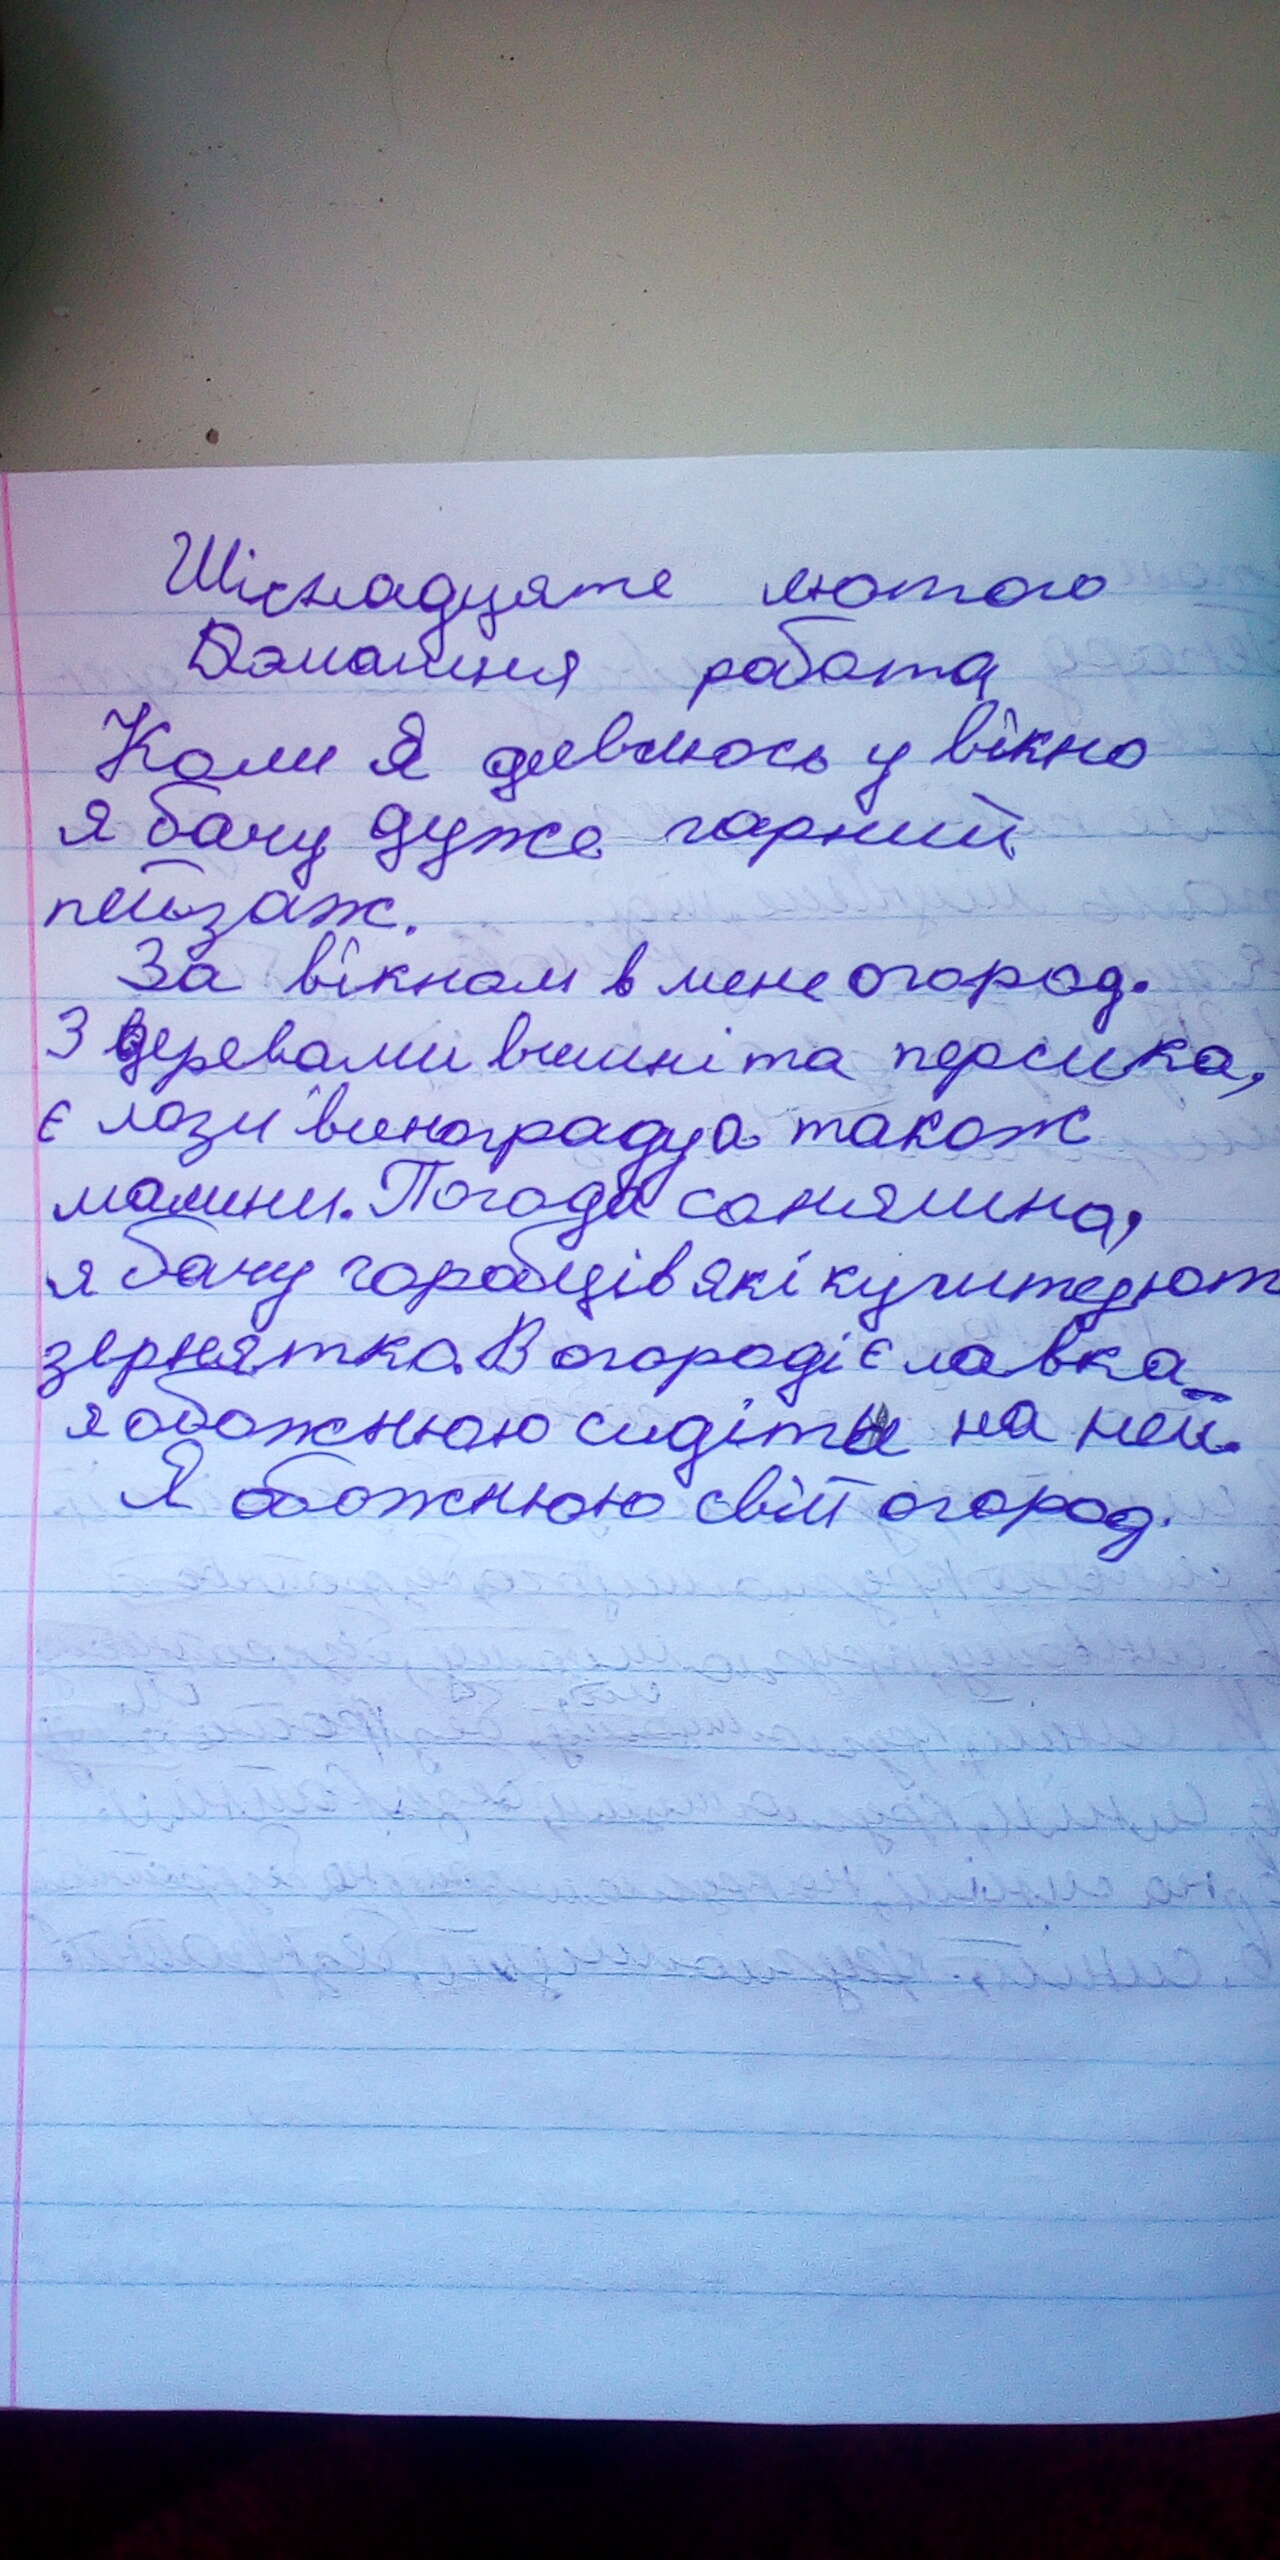 Шіснадцяте лютого
Домашня робота
Коли я дивлюсь у вікно
я бачу дуже гарний
пейзаж.
За вікном в мене огород.
З деревами вишні та персика,
є лози винограду а також
малини. Погода сонячна,
я бачу горобців які
зернятка. В огороді є лавка
я обожнюю сидіти на ней.
Я обожнюю свій огород.